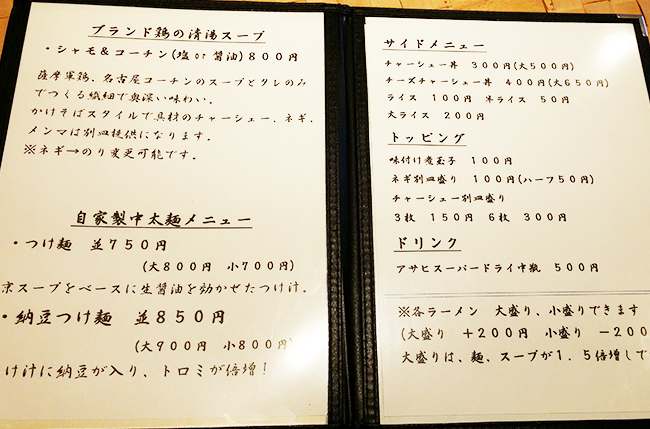 ブランド鶏の清湯スープ
・シャモ＆コーチン(塩or醤油)８００円
薩摩軍鶏、名古屋コーチンのスープとタレのみ
でつくる繊細で奥深い味わい。
かけそばスタイルで具材のチャーシュー、ネギ、
メンマは別皿提供になります。
※ネギ→のり変更可能です。
自家製中太麺メニュー
・つけ麺　並７５０円
(大８００円　小７００円)
京スープをベースに生醤油を効かせたつけ汁。
・納豆つけ麺　並８５０円
(大９００円　小８００円)
け汁に納豆が入り、トロミが倍増！
サイドメニュー
チャーシュー丼　３００円(大５００円)
チーズチャーシュー丼　４００円(大６５０円)
ライス　１００円　半ライス　５０円
大ライス　２００円
トッピング
味付け煮玉子　１００円
ネギ別皿盛り　１００円(ハーフ５０円)
チャーシュー別皿盛り
３枚　１５０円　６枚　３００円
ドリンク
アサヒスーパードライ中瓶　５００円
※各ラーメン　大盛り、小盛りできます
(大盛り　＋２００円　小盛り　－２００
大盛りは、麺、スープが１．５倍増しで